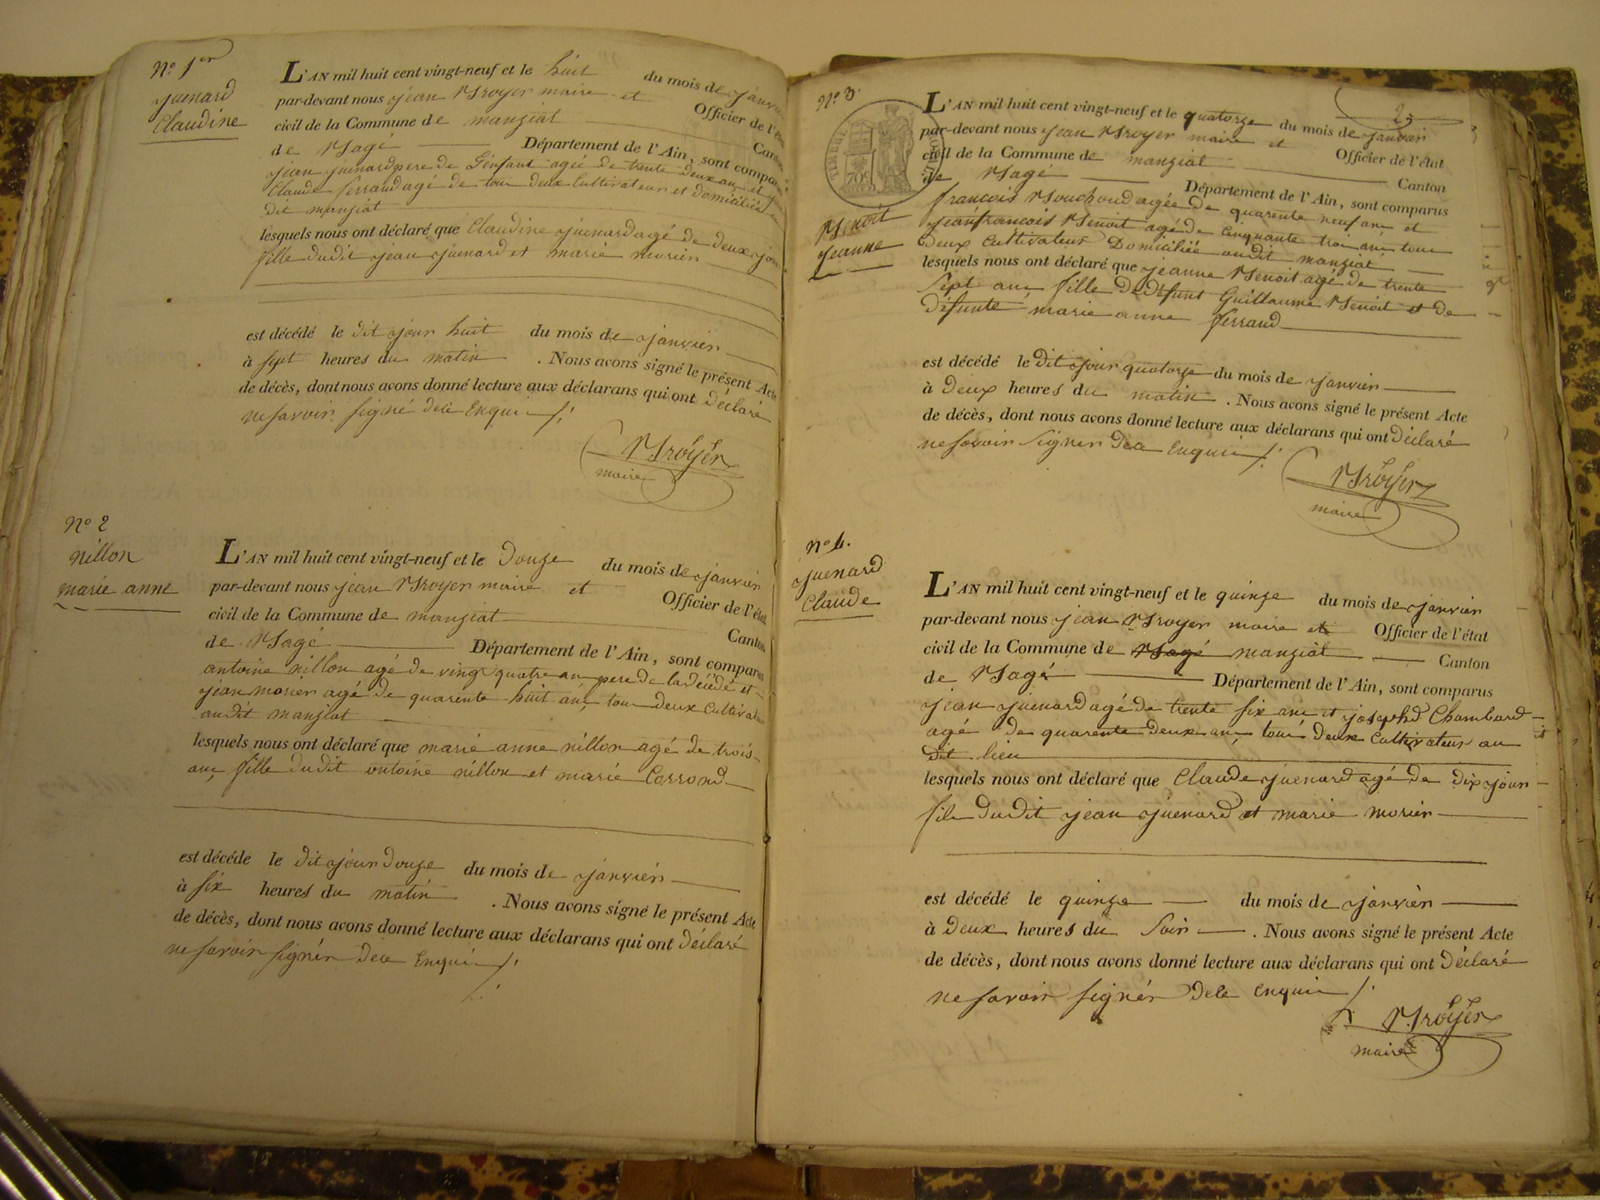 N° 1er
Juenard
Claudine
L'AN mil huit cent vingt-neuf et le huit du mois de Janvier
par-devant nous Jean Broyer maire et Officier de l'état
civil de la Commune de manziat Canton
de Bagé Département de l'Ain, sont comparus
Jean Juenard pere de l'enfant agé de trente deux ans et
Claude ferrand agé de tous deux Cultivateurs et domiciliés
dit manziat
lesquels nous ont déclaré que Claudine Juenard agé de deux jours
fille dudit Jean Juenard et marie morier
est décédé le dit jour huit du mois de Janvier
à sept heures du matin . Nous avons signé le présent Acte
de décès, dont nous avons donné lecture aux déclarans qui ont déclaré
ne savoir signé de ce Enquis
Broyer
maire
N° 2
nillon
marie anne
L'AN mil huit cent vingt-neuf et le Douze du mois de Janvier
par-devant nous Jean Broyer maire et Officier de l'état
civil de la Commune de manziat Canton
de Bagé Département de l'Ain, sont comparus
antoine nillon agé de vingt quatre an pere de la décédé et
Jean morier agé de quarente huit ans tous deux Cultivateurs
audit manziat
lesquels nous ont déclaré que marie anne nillon agé de trois
ans fille dudit antoine nillon et marie Corrond
est décédé le dit jour Douze du mois de Janvier
à six heures du matin . Nous avons signé le présent Acte
de décès, dont nous avons donné lecture aux déclarans qui ont déclaré
ne savoir signér de ce Enquis
N° 3
TIMBRE ROYAL
Benoit
Jeanne
2
L'AN mil huit cent vingt-neuf et le quatorze du mois de Janvier
par-devant nous Jean Broyer maire et Officier de l'état
civil de la Commune de manziat Canton
de Bagé Département de l'Ain, sont comparus
françois Bouchoud agée de quarente neuf ans et
Jean francois Benoit agé de Cinquante trois ans tous
deux Cultivateurs Domiciliée audit manziat
lesquels nous ont déclaré que Jeanne Benoit agé de trente
Sept ans fille de Défunt Guillaume Benoit et de
Défunte marie anne ferrand
est décédé le dit jour quatorze du mois de Janvier
à Deux heures du matin . Nous avons signé le présent Acte
de décès, dont nous avons donné lecture aux déclarans qui ont déclaré
ne savoir signer de ce Enquis
Broyer
maire
N° 4.
Juenard
Claude
L'AN mil huit cent vingt-neuf et le quinze du mois de Janvier
par-devant nous Jean Broyer maire et Officier de l'état
civil de la Commune de Bagé manziat Canton
de Bagé Département de l'Ain, sont comparus
Jean Juenard agé de trente six ans et Joseph Chambard
agé de quarente deux ans tous deux Cultivateur au
dit lieu
lesquels nous ont déclaré que Claude Juenard agé de dix jour
fils dudit Jean Juenard et marie morier
est décédé le quinze du mois de Janvier
à Deux heures du Soir . Nous avons signé le présent Acte
de décès, dont nous avons donné lecture aux déclarans qui ont Déclaré
ne savoir signér de ce enquis
Broyer
maire